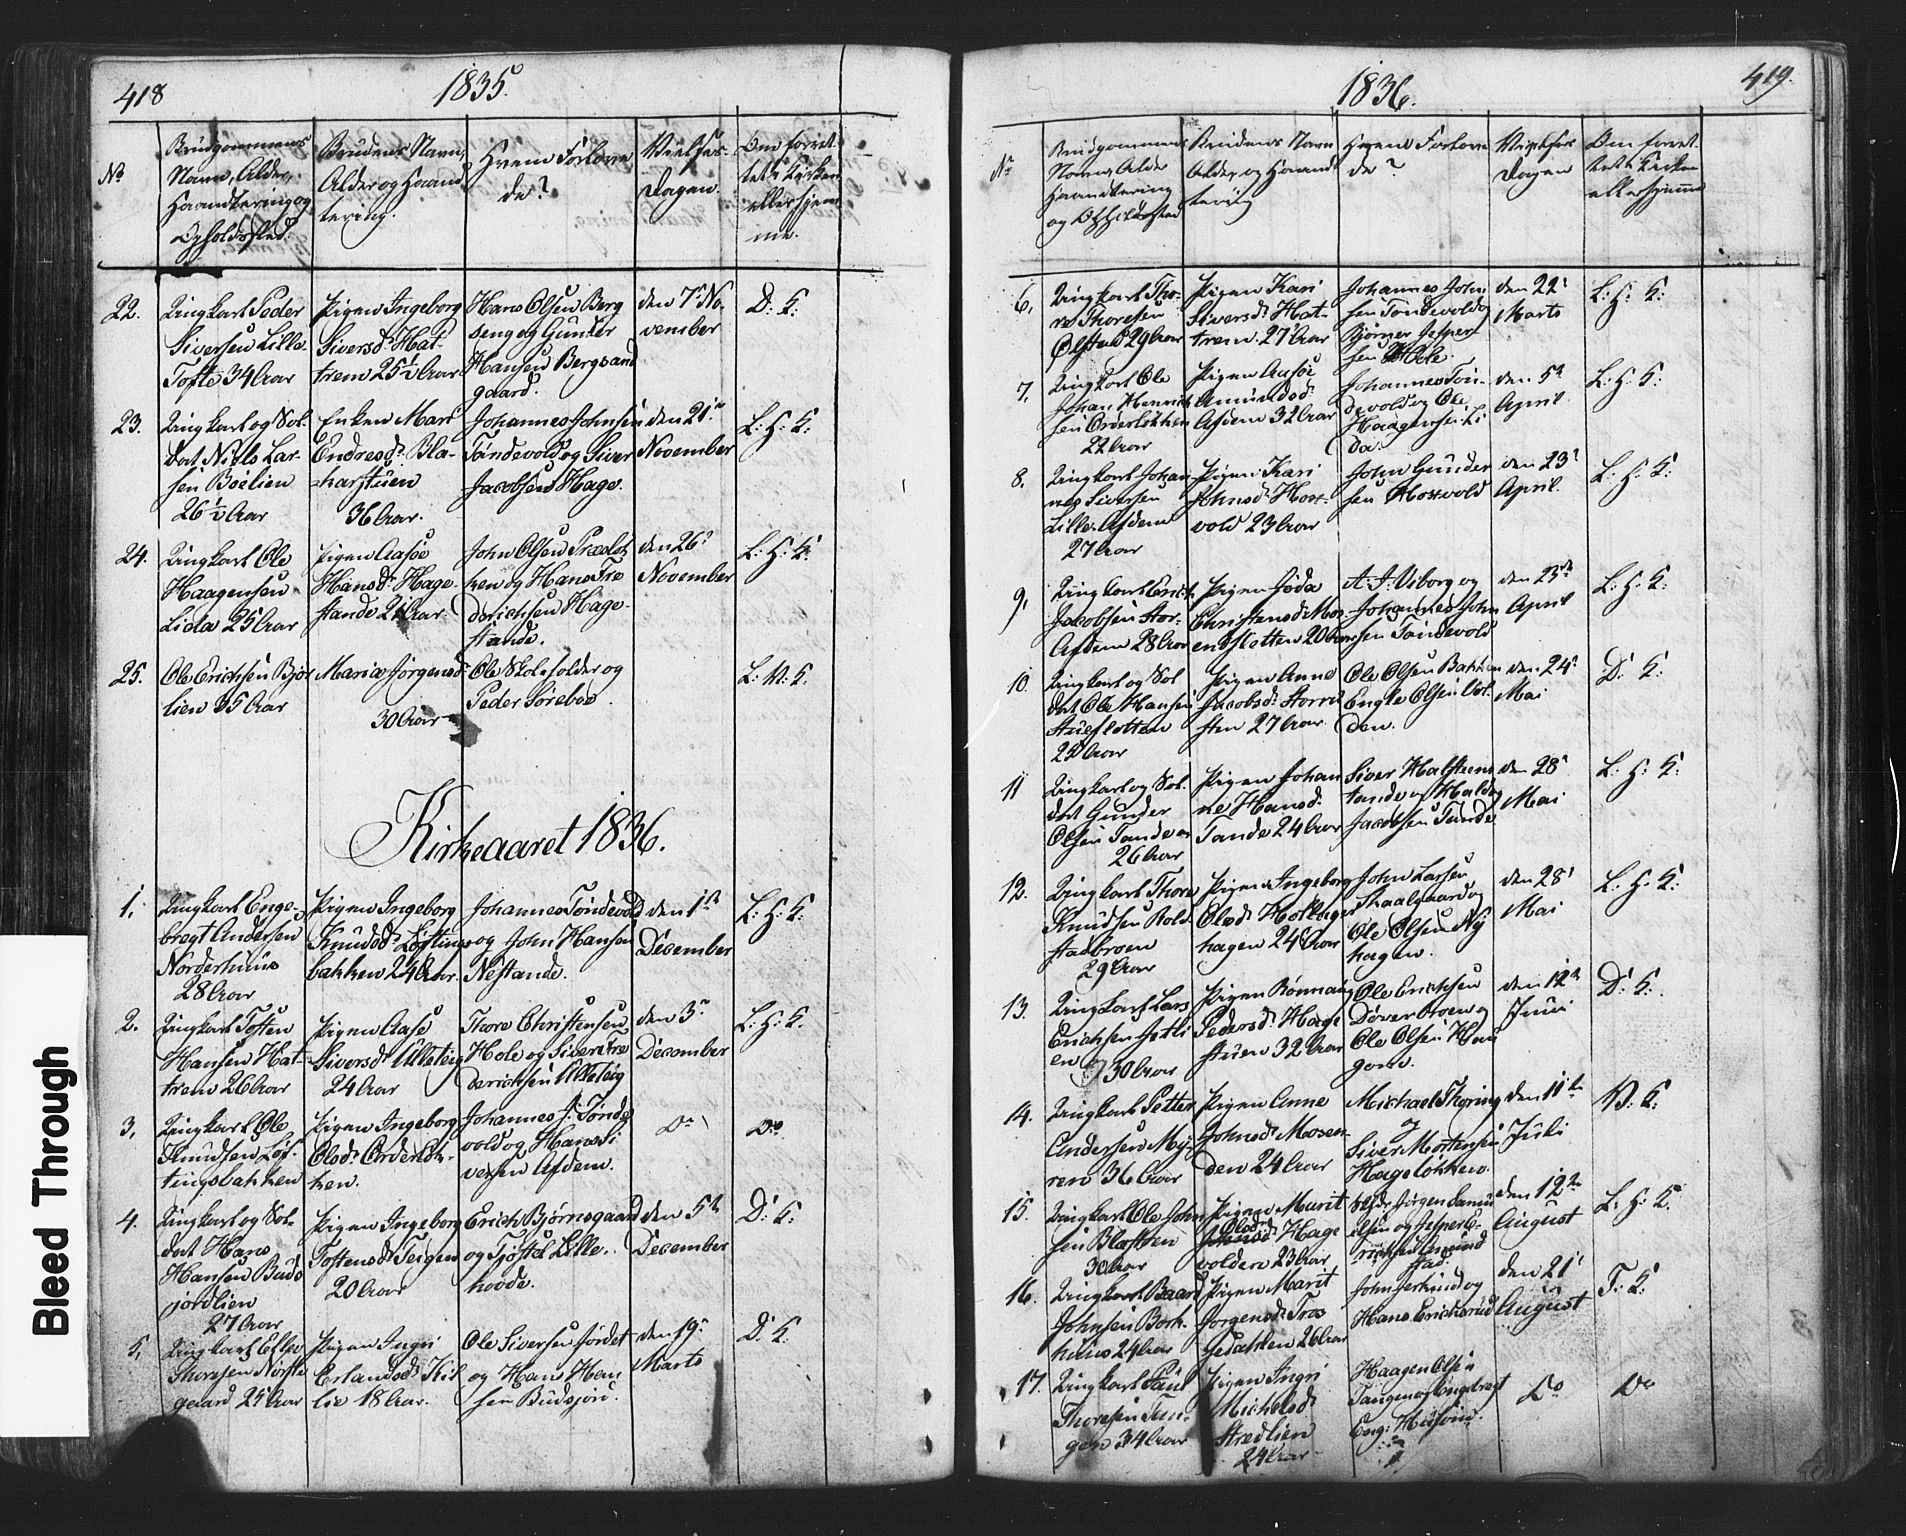 418
1835.
No
Brudgommens
Navn, Alder,
Haandtering og
Opholdssted.
Brudens Navn,
Alder og Haand
tering.
Hvem Forlove
de?
Vielses-
Dagen.
Om forret
tet i Kirken
eller hjem
me.
22.
Ungkarl Peder
Siversen Lille-
Tofte 34 Aar
Pigen Ingeborg
Siversd. Hat-
trem 25½ Aar
Hans Olsen Berg
seng og Gunder
Hansen Bergsand
gaard.
den 7. No
vember
D: K:
23.
Ungkarl og Sol-
dat Niels Lar-
sen Bøelien
26½ Aar
Enken Mari
Endresd. Bla-
harstuen
36 Aar.
Johannes Johnsen
Tøndevold og Siver
Jacobsen Hage.
den 21
November
L: H: K:
24.
Ungkarl Ole
Haagensen
Lida 25 Aar
Pigen Aasøe
Hansd. Hage-
stande 21 Aar
John Olsen
ken og Hans Fre
derichsen Hage-
stande.
den 26
November
L: H: K:
25.
Ole Erichsen Bjør
lien 35 Aar
Maria Jørgensd.
30 Aar
Ole Skoleholder og
Peder Søreboe.
L: V: K:
Kirkeaaret 1836.
1,
Ungkarl Enge-
bregt Andersen
Norderhuus
28 Aar
Pigen Ingeborg
Knudsd. Løftings-
bakken 24 Aar.
Johannes Tøndevold
og John Hansen
Nestande.
den 1ste
December
L: H: K:
2.
Ungkarl Tosten
Hansen Hat-
trem 26 Aar
Pigen Aase
Siversd. Ulleteig
24 Aar
Thore Christensen
Hole og Siver Fre
derichsen Ulleteig
den 3
December
L: H: K:
3,
Ungkarl Ole
Knudsen Løf-
tingsbakken
Pigen Ingeborg
Olsd. Orderløk-
ken.
Johannes J. Tønde
vold og Hans Si
versen Afdem.
Do
Do
4.
Ungkarl og Sol-
dat Hans
Hansen Buds
jordlien
27 Aar
Pigen Ingeborg
Tostensd. Teigen
20 Aar
Erich Bjørnsgaard
og Tjøstel Lille-
hovde.
den 5te
December
D: K:
5,
Ungkarl Ellev
Thoresen Norste
gaard 25 Aar
Pigen Ingri
Erlandsd. Kil
lie 18 Aar.
Ole Siversen Jordet
og Hans Han
sen Budsjord.
den 19
Marts
D: K:
1836.
419.
No
Brudgommens
Navn, Alder
Haandtering
og Opholdssted
Brudens Navn
Alder og Haand
tering
Hvem Forlove
de?
Vielses
Dagen
Om forret
tet i Kirken
eller hjemme
6,
Ungkarl Tho-
re Thoresen
Ølstad 29 Aar
Pigen Kari
Siversd. Hat-
trem. 27 Aar
Johannes John
sen Tøndevold og
Bjørner Jesper
sen Hole.
den 22
Marts
L: H: K:
7,
Ungkarl Ole
Johan Henrich
sen Orderløkken
22 Aar
Pigen Aasøe
Amundsd.
Afdem 32 Aar
Johannes Tøn-
devold og Ole
Haagensen Li
da.
den 5te
April
L: H: K:
8,
Ungkarl Johan
nes Siversen
Lille-Afdem
27 Aar
Pigen Kari
Johnsd. Hox-
vold 23 Aar
John Gunder
sen Hoxvold
den 23
April.
L: H: K:
9,
Ungkarl Erich
Jacobsen Stor-
Afdem 28 Aar
Pigen Jøda
Christensd. Mos-
enesletten 20 Aar
A: J: Viborg og
Johannes John
sen Tøndevold
den 23de
April
L: H: K:
10.
Ungkarl og Sol
dat Ole Hansen
Stuesletten
25 Aar
Pigen Anne
Jacobsd.
sten 27 Aar
Ole Olsen Bakken
Engle Olsen Vol-
den.
den 24
Mai
D: K:
11
Ungkarl og Sol-
dat Gunder
Olsen Tande
26 Aar
Pigen Johan
ne Hansd.
Tande 24 Aar
Siver Halsteens
tande og Haldor
Jacobsen Tande
den 28
Mai
L: H: K:
12.
Ungkarl Thore
Knudsen Kold
stadbroen
29 Aar
Pigen Ingeborg
Olsd. Kollager
hagen 24 Aar
John Larsen
Skaalgaard og
Ole Olsen Ny
hagen.
den 28
Mai
L: H: K:
13.
Ungkarl Lars
Erichsen Jetli
en 30 Aar
Pigen Rønnaug
Pedersd. Hage
stuen 32 Aar
Ole Erichsen
Dovermoen og
Ole Olsen Hau
gom.
den 12te
Juni
D: K:
14.
Ungkarl Petter
Andersen Mÿ-
ren 36 Aar
Pigen Anne
Johnsd. Mosen-
den 24 Aar
Michael Thoring
og
Siver Mortensen
Hageløkken.
den 11te
Juli
V: K:
15.
Ungkarl Ole John
sen Blæstren
30 Aar
Pigen Marit
Olsdr
Hage
volden 23 Aar
Jørgen Samu
elsen og Jesper E-
richsen Amund
stad.
den 12te
August
L: H: K:
16.
Ungkarl Baard
Johnsen Bork-
huus 24 Aar
Pigen Marit
Jørgensd. Tros
gedahlen 26 Aar
John Jerkind og
Hans Erichsrud
den 21
August
F: K:
17.
Ungkarl Paul
Thoresen Tun-
gen 34 Aar
Pigen Ingri
Michelsd.
Strædlien
24 Aar
Haagen Olsen
Tangen og Engebregt
Eng: Husom.
Do
Do
Bleed Through